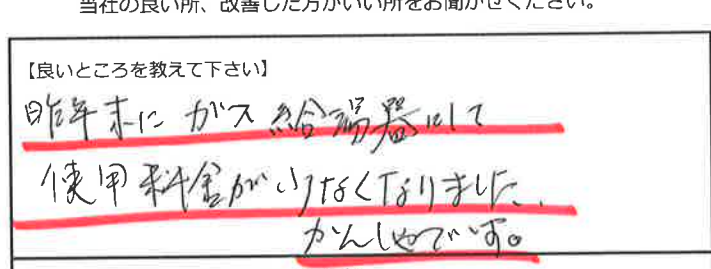 当社の良い所、改善した方がいい所をお聞かせください。
【良いところを教えて下さい】
昨年末にガス給湯器にして
使用料金が少なくなりました、
かんしゃです。